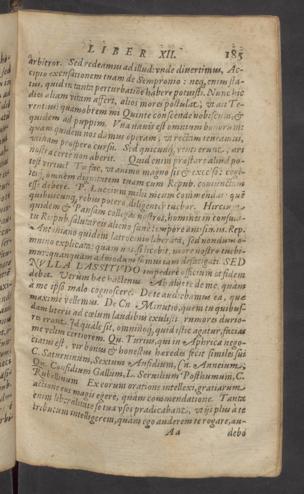 LIBER XII. 185
arbitror. Sed redeamus ad illud: unde divertimus, Ac-
cipio excusationem tuam de Sempronio: neq; enim sta-
tui, quid in tanta perturbatione habere potuisti. Nunc hic
dies aliam vitam affert, alios mores postulat, ut ait Te-
rentius: quamobrem mi Quinte conscende nobiscum, &
quidem ad puppim. Una navis est omnium bonorum:
quam quidem nos damus operam, ut rectam teneamus,
utinam prospero cursu. Sed quicunq; venti erunt, ars
nostra certe non aberit. Quid enim præstare aliud po-
test virtus? Tu fac, ut animo magno sis & excelso: cogi-
tesq; omnem dignitatem tuam cum Repub. conjunctam
esse debere. P. Luccium mihi meum commendas: quem
quibuscunq; rebus potero diligenter tuebor. Hircium
quidem & Pansam collegas nostros, homines in consula-
tu Reipub. salutares alieno sane tempore amisimus. Rep.
Antoniano quidem latrocinio liberata, sed nondum o-
mnino explicata: quam nos, si licebit, more nostro tuebi-
mur: quanquam admodum sumus iam defatigati. SED
NULLA LASSITUDO impedire officium & fidem
debet. Verum hæc hactenus. Ab aliis te de me, quam
a me ipso malo cognoscere. De te audiebamus ea, quæ
maxime vellemus. De Cn. Minutio, quem tu quibus-
dam literis ad cœlum laudibus extulisti, rumores durio-
res erant. Id quale sit, omninoq; quid istic agatur, facias
me velim certiorem. Qu. Turius, qui in Aphrica nego-
ciatus est, vir bonus & honestus hæredes fecit similes sui
C. Saturninum, Sextum Aufidium, C. Anneium,
Qu. Considium Gallum, L. Servilium Posthumum, C.
Rubellinum. Ex eorum oratione intellexi, gratiarum
actione eos magis egere, quàm commendatione. Tanta
enim liberalitate se tua usos prædicabant, ut iis plus à te
tributum intelligerem, quàm ego auderem te rogare, au-
Aa debo